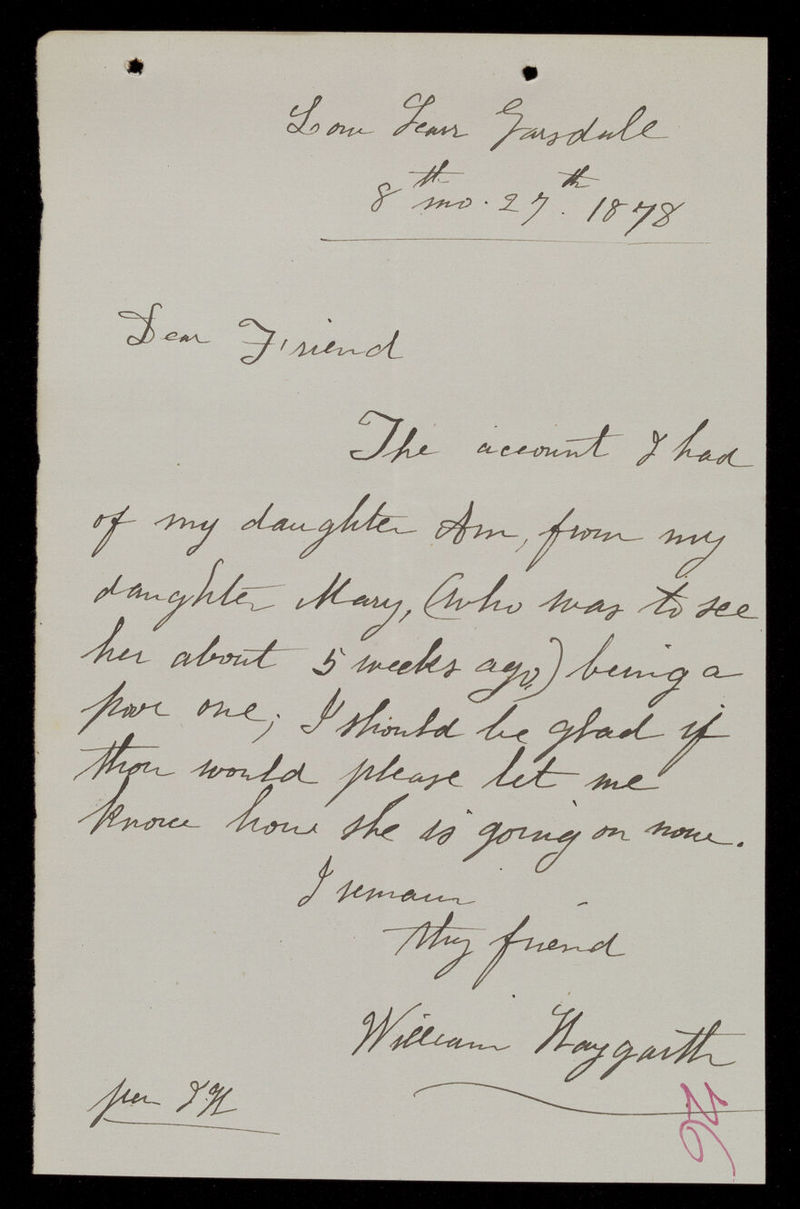 Low Scarr Garsdale
8th mo. 27th. 1878
Dear Friend
The account I had
of my daughter Ann, from my
daughter Mary, (who was to see
her about 5 weeks ago,) being a
poor one; I should be glad if
thou would please let me
know how she is going on now.
I remain
thy friend
William Haygarth
per IH
26